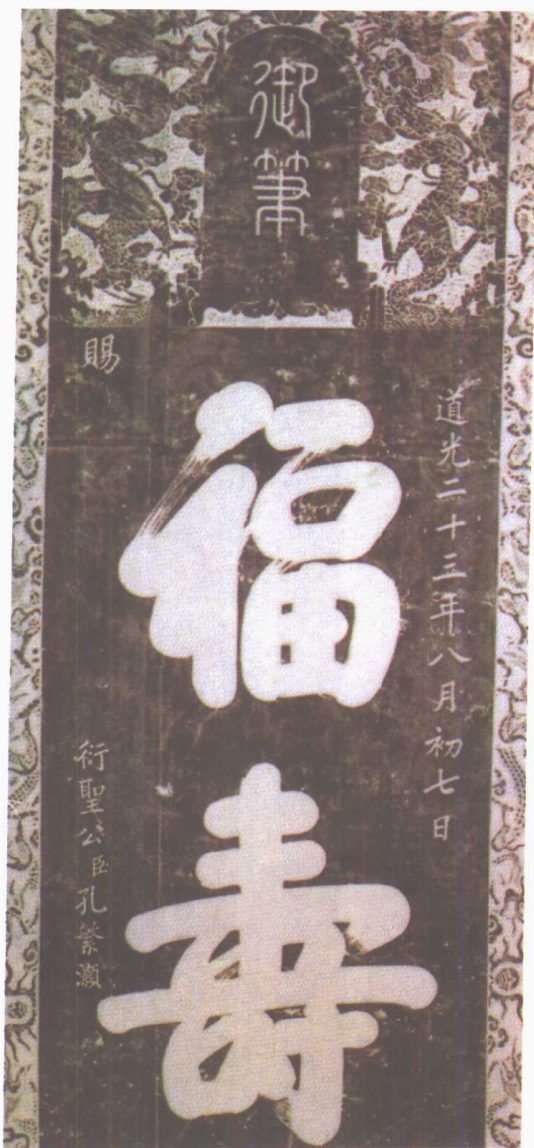 御筆
道光二十三年八月初七日
福壽
賜
衍聖公臣孔繁灝